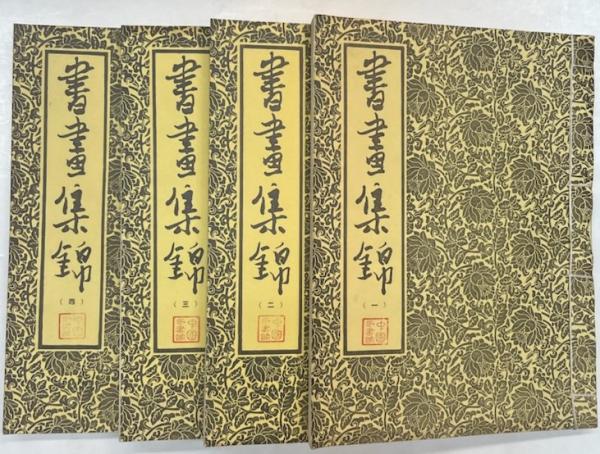 書畫集錦
(四)
書畫集錦
(三)
書畫集錦
(二)
書畫集錦
(一)